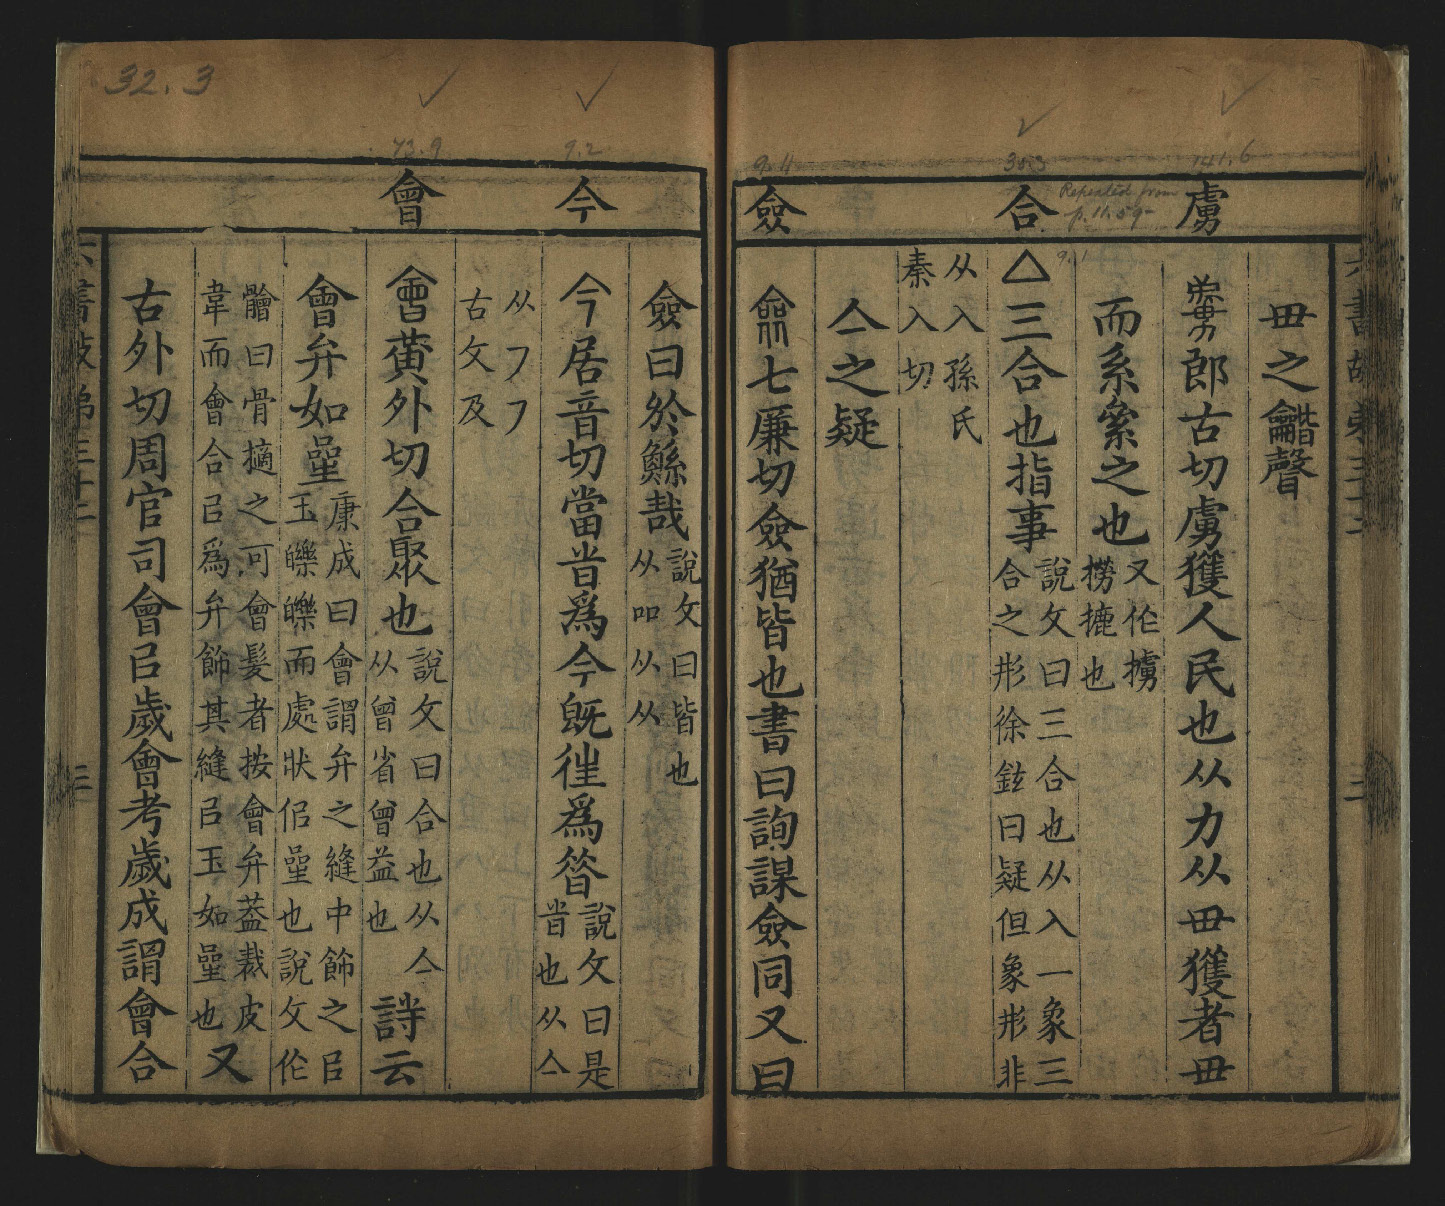 虜
合
僉
毌之龤聲
郎古切虜獲人民也从力从毌獲者毌
而系絫之也
又作擄
撈摝也
亼三合也指事
說文曰三合也从入一象三
合之形徐鉉曰疑但象形非
从入孫氏
秦入切
亼之疑
七廉切僉猶皆也書曰詢謀僉同又曰
今
會
僉曰於鯀哉
說文曰皆也
从吅从从
今居音切當昔爲今旣徃爲昝
說文曰是
昔也从亼
从㇇㇇
古文及
會黃外切合聚也
說文曰合也从亼
从曾省曾益也
詩云
會弁如䍿
康成曰會謂弁之縫中飾之㠯
玉皪皪而處狀佀䍿也說文作
䯤曰骨擿之可會髮者按會弁葢裁皮
韋而會合㠯爲弁飾其縫㠯玉如䍿也
又
古外切周官司會㠯歲會考歲成謂會合
六書故弟三十二
三
32.3
73.9
9.2
9.4
9.1
141.6
Repeated from